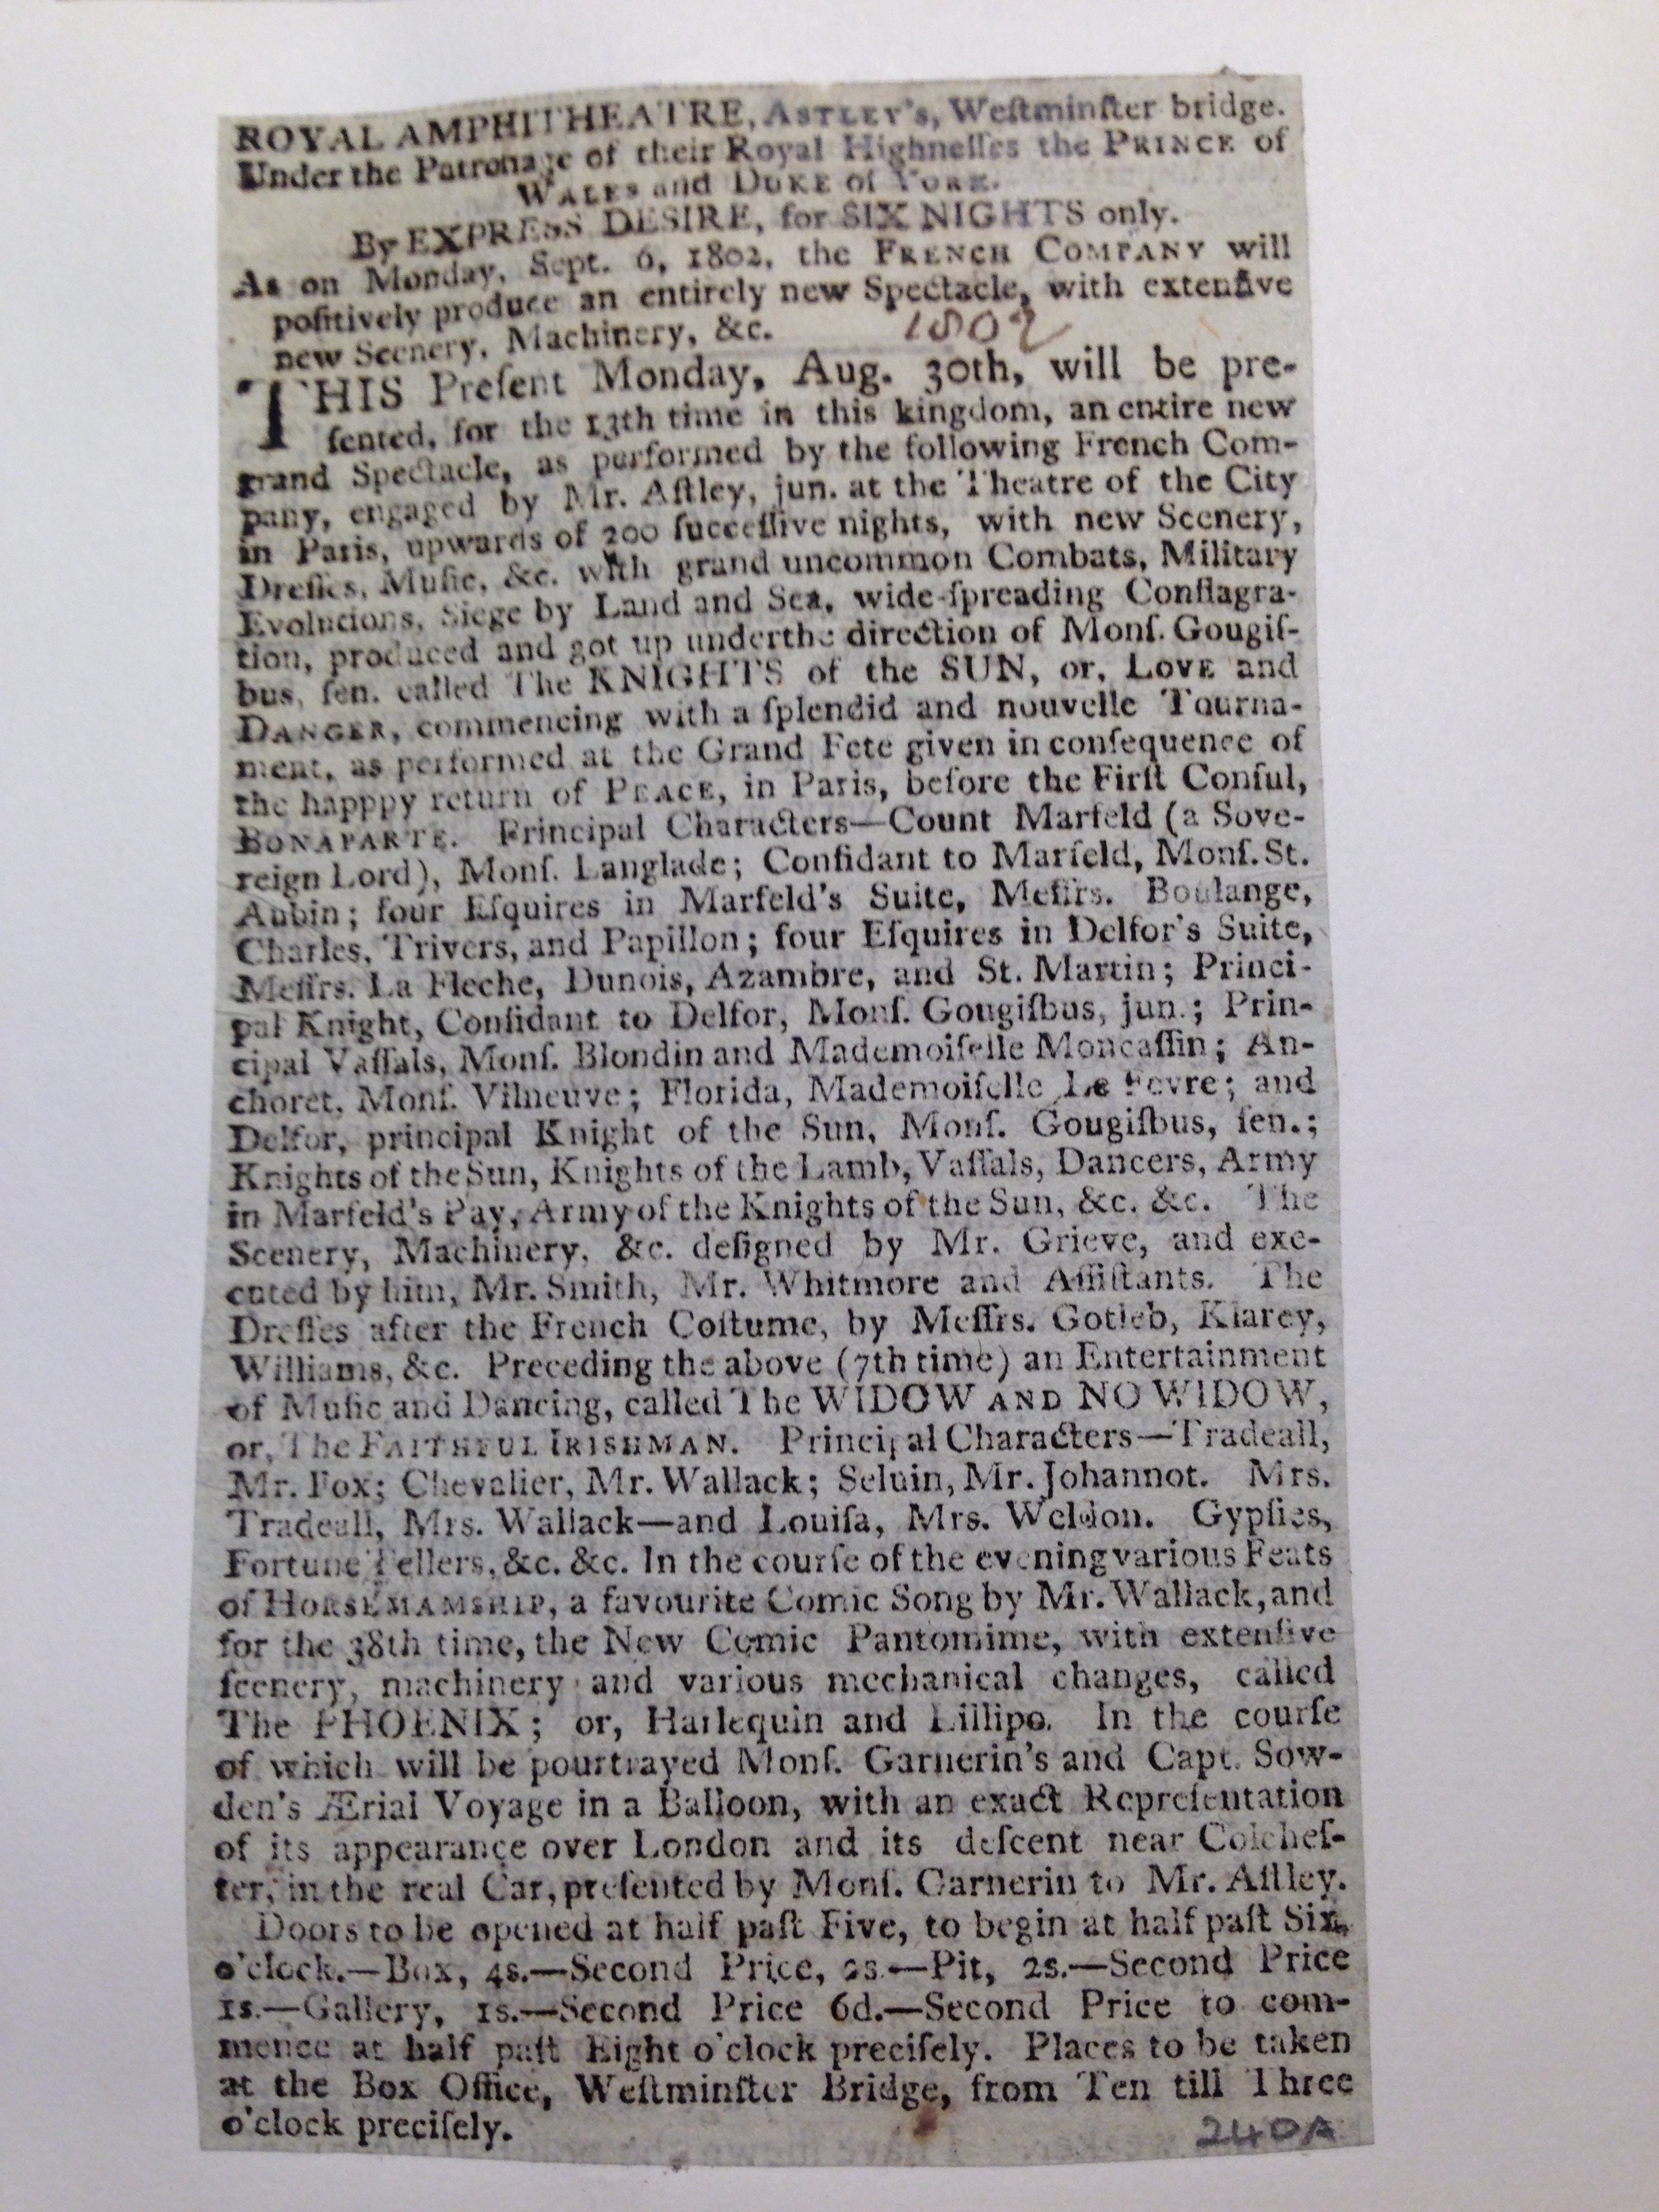 ROYAL AMPHITHEATRE, ASTLEY's, Weſtminſter bridge.
Under the Patronage of their Royal Highneſſes the PRINCE of
WALES and DUKE of YORK.
By EXPRESS DESIRE, for SIX NIGHTS only.
As on Monday, Sept. 6, 1802, the FRENCH COMPANY will
poſitively produce an entirely new Spectacle, with extenſive
new Scenery, Machinery, &c.
1802
THIS Preſent Monday, Aug. 30th, will be pre-
ſented, for the 13th time in this kingdom, an entire new
grand Spectacle, as performed by the following French Com-
pany, engaged by Mr. Aſtley, jun. at the Theatre of the City
in Paris, upwards of 200 ſucceſſive nights, with new Scenery,
Dreſſes, Muſic, &c. with grand uncommon Combats, Military
Evolutions, Siege by Land and Sea, wide-ſpreading Conflagra-
tion, produced and got up underthe direction of Monſ. Gougiſ-
bus, ſen. called The KNIGHTS of the SUN, or, LOVE and
DANGER, commencing with a ſplendid and nouvelle Tourna-
ment, as performed at the Grand Fete given in conſequence of
the happpy return of PEACE, in Paris, before the Firſt Conſul,
BONAPARTE. Principal Characters—Count Marfeld (a Sove-
reign Lord), Monſ. Langlade; Confidant to Marfeld, Monſ. St.
Aubin; four Eſquires in Marfeld's Suite, Meſſrs. Boulange,
Charles, Trivers, and Papillon; four Eſquires in Delfor's Suite,
Meſſrs. La Fleche, Dunois, Azambre, and St. Martin; Princi-
pal Knight, Confidant to Delfor, Monſ. Gougiſbus, jun.; Prin-
cipal Vaſſals, Monſ. Blondin and Mademoiſelle Moncaſſin; An-
choret, Monſ. Vilneuve; Florida, Mademoiſelle Le Fevre; and
Delfor, principal Knight of the Sun, Monſ. Gougiſbus, ſen.;
Knights of the Sun, Knights of the Lamb, Vaſſals, Dancers, Army
in Marfeld's Pay, Army of the Knights of the Sun, &c. &c. The
Scenery, Machinery, &c. deſigned by Mr. Grieve, and exe-
cuted by him, Mr. Smith, Mr. Whitmore and Aſſiſtants. The
Dreſſes after the French Coſtume, by Meſſrs. Gotleb, Klarey,
Williams, &c. Preceding the above (7th time) an Entertainment
of Muſic and Dancing, called The WIDOW AND NO WIDOW,
or, The FAITHFUL IRISHMAN. Principal Characters—Tradeall,
Mr. Fox; Chevalier, Mr. Wallack; Seluin, Mr. Johannot. Mrs.
Tradeall, Mrs. Wallack—and Louiſa, Mrs. Weldon. Gypſies,
Fortune Tellers, &c. &c. In the courſe of the evening various Feats
of HORSEMAMSHIP, a favourite Comic Song by Mr. Wallack, and
for the 38th time, the New Comic Pantomime, with extenſive
ſcenery, machinery and various mechanical changes, called
The PHOENIX; or, Harlequin and Lillipo. In the courſe
of which will be pourtrayed Monſ. Garnerin's and Capt. Sow-
den's Ærial Voyage in a Balloon, with an exact Repreſentation
of its appearance over London and its deſcent near Colcheſ-
ter, in the real Car, preſented by Monſ. Garnerin to Mr. Aſtley.
Doors to be opened at half paſt Five, to begin at half paſt Six,
o'clock.—Box, 4s.—Second Price, 2s.—Pit, 2s.—Second Price
1s.—Gallery, 1s.—Second Price 6d.—Second Price to com-
mence at half paſt Eight o'clock preciſely. Places to be taken
at the Box Office, Weſtminſter Bridge, from Ten till Three
o'clock preciſely.
240A